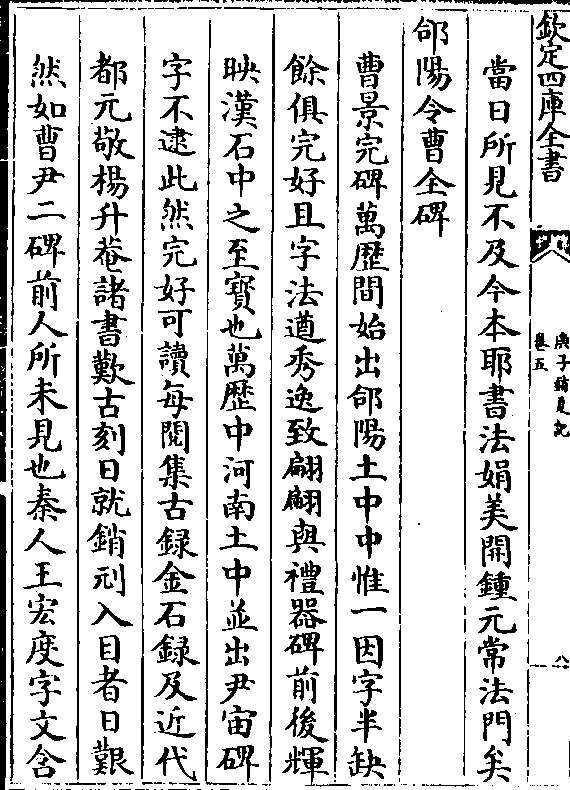 欽定四庫全書
庚子銷夏記
卷五
八
當日所見不及今本耶書法娟美開鍾元常法門矣
郃陽令曹全碑
曹景完碑萬歷間始出郃陽土中中惟一因字半缺
餘俱完好且字法遒秀逸致翩翩與禮器碑前後輝
映漢石中之至寳也萬歷中河南土中並出尹宙碑
字不逮此然完好可讀每閱集古録金石録及近代
都元敬楊升菴諸書歎古刻日就銷刓入目者日艱
然如曹尹二碑前人所未見也秦人王宏度字文含